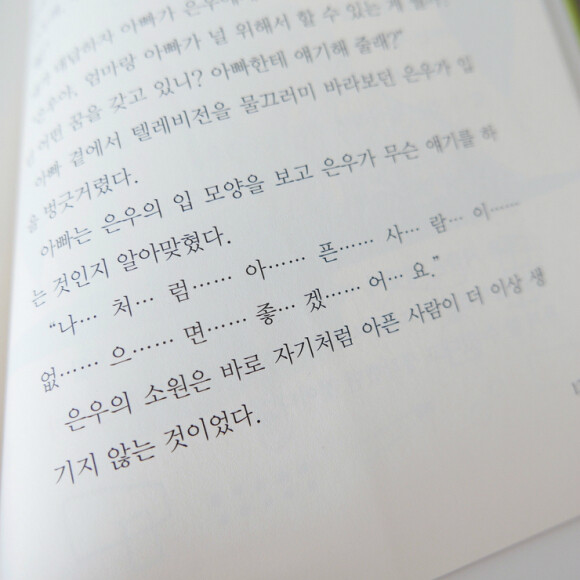 대답하자 아빠가 은우에
은우야, 엄마랑 아빠가 널 위해서 할 수 있는 게
어떤 꿈을 갖고 있니? 아빠한테 얘기해 줄래?”
아빠 곁에서 텔레비전을 물끄러미 바라보던 은우가 입
을 벙긋거렸다.
아빠는 은우의 입 모양을 보고 은우가 무슨 얘기를 하
는 것인지 알아맞혔다.
“나… 처… 럼…… 아…… 픈…… 사… 람… 이……
없…… 으…… 면…… 좋… 겠…… 어… 요.”
은우의 소원은 바로 자기처럼 아픈 사람이 더 이상 생
기지 않는 것이었다.